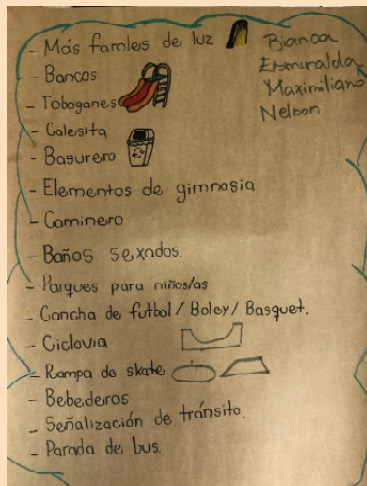 - Más faroles de luz
- Bancos
- Toboganes
- Calesita
- Basurero
- Elementos de gimnasia
- Caminero
- Baños sexados.
- Parques para niños/as
- Cancha de futbol / Boley / Basquet.
- Ciclovia
- Rampa de skate
- Bebederos
- Señalización de tránsito.
- Parada de bus.
Bianca
Esmeralda
Maximiliano
Nelson